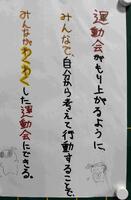 運動会がもり上がるように、
みんなで、自分から考えて行動することで、
みんながわくわくした運動会にできる。